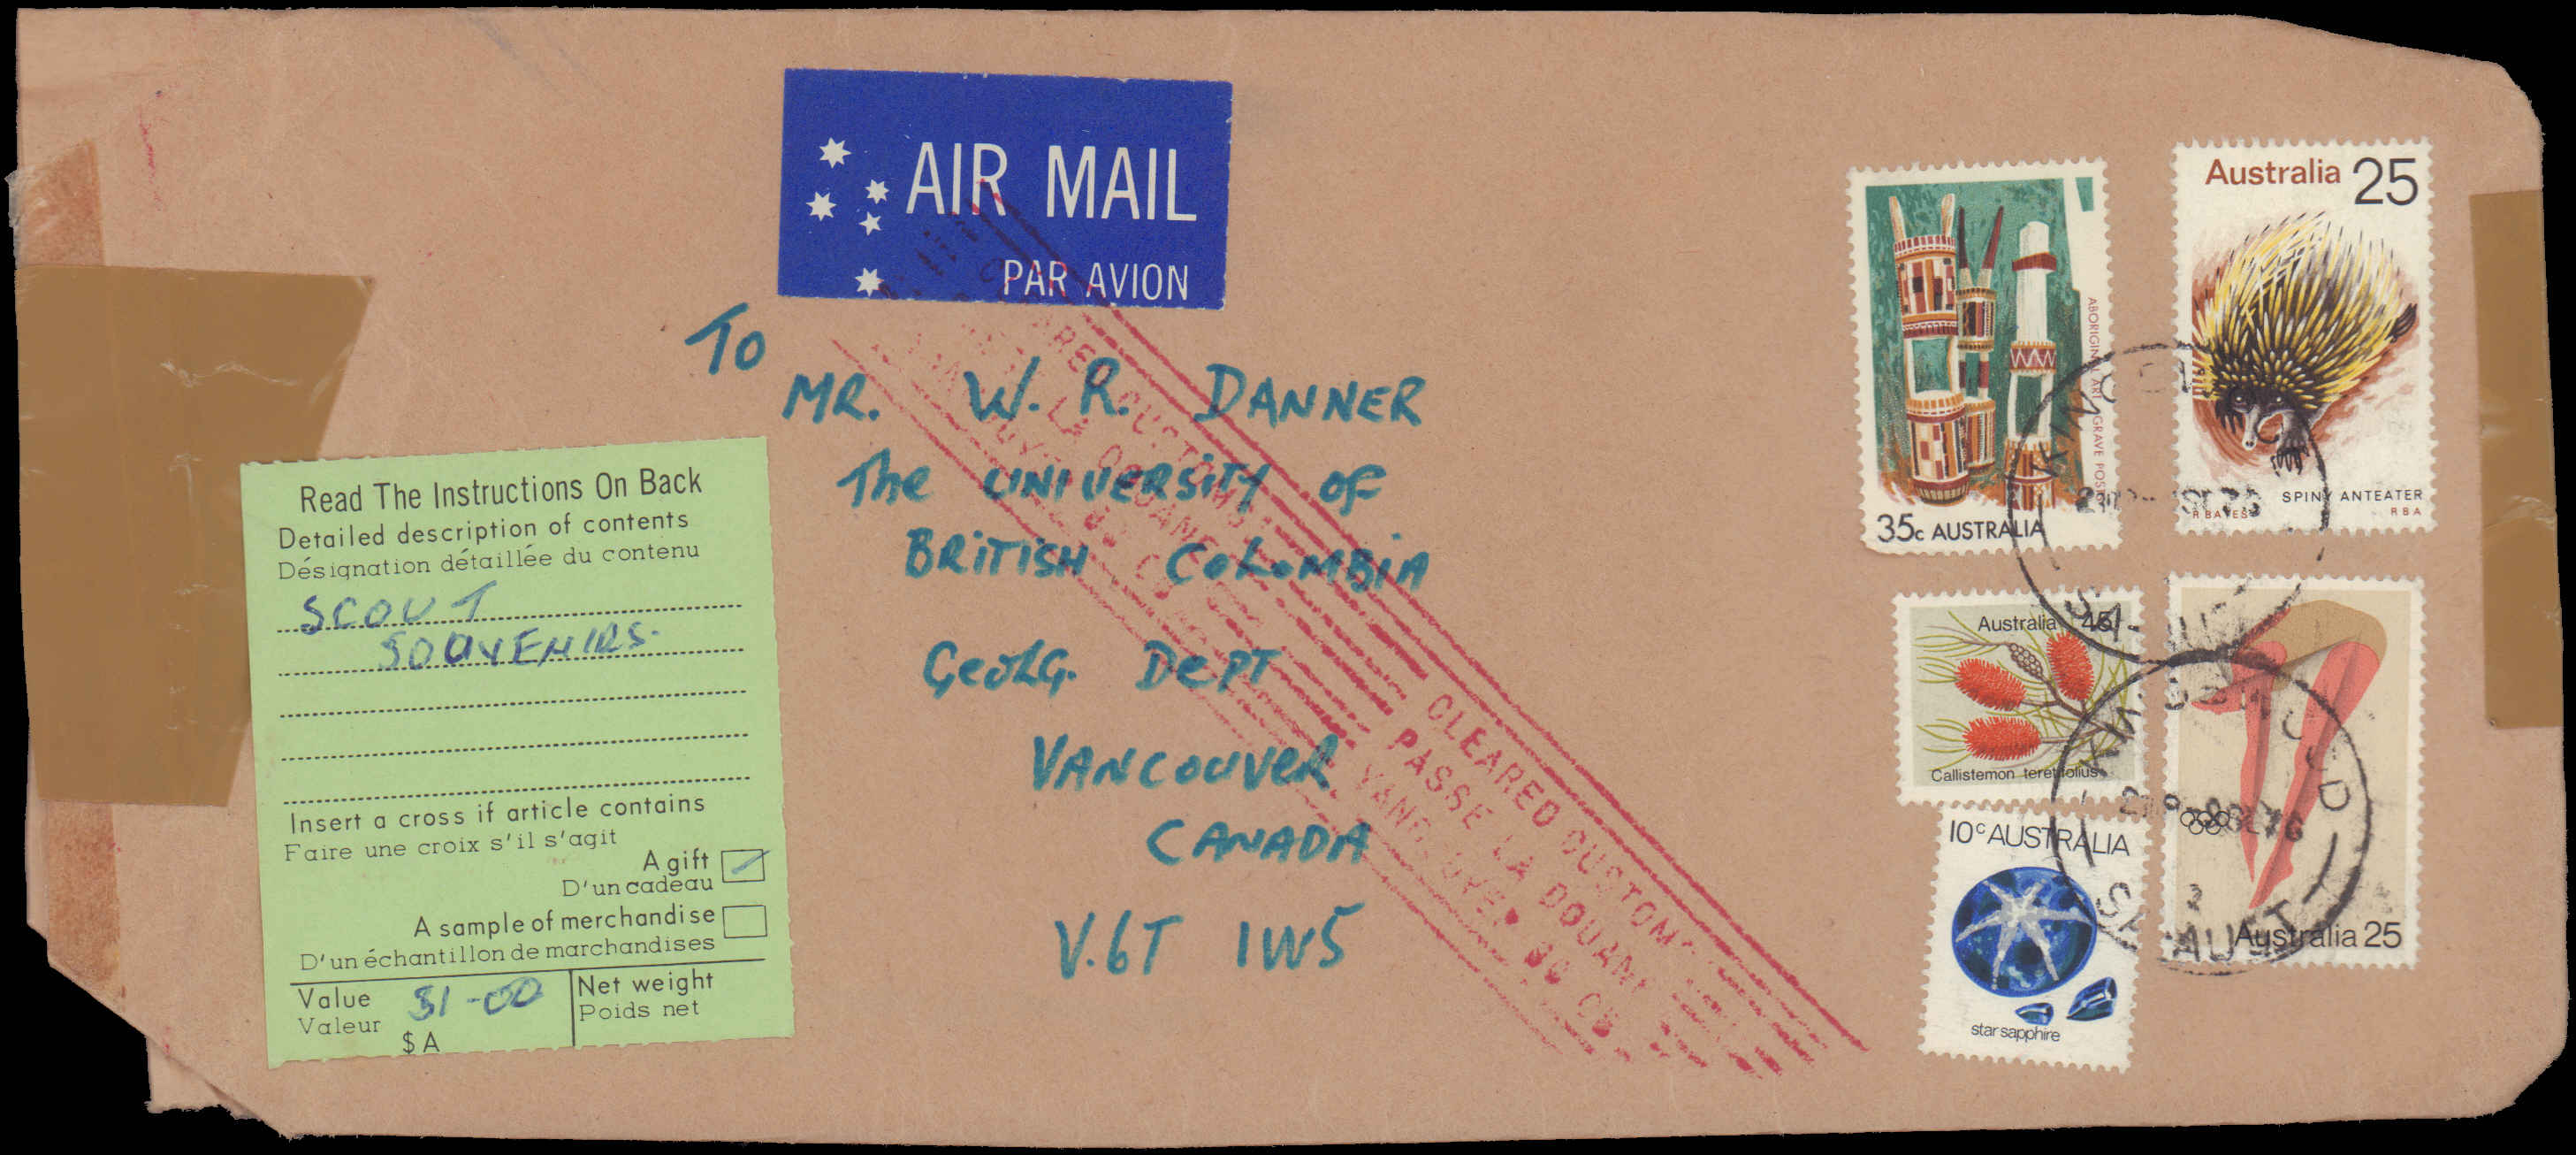 AIR MAIL
PAR AVION
To
MR. W. R. DANNER
The UNIVERSITY OF
BRITISH COLOMBIA
GEOLG. DEPT
VANCOUVER
CANADA
V.6T 1W5
Read The Instructions On Back
Detailed description of contents
Désignation détaillée du contenu
SCOUT
SOUVENIRS.
Insert a cross if article contains
Faire une croix s'il s'agit
A gift
D'un cadeau
A sample of merchandise
D'un échantillon de marchandises
Value
Valeur
$1-00
$A
Net weight
Poids net
CLEARED CUSTOMS
PASSE LA DOUANE
VANCOUVER
CLEARED CUSTOMS
PASSE LA DOUANE
VANCOUVER
35c AUSTRALIA
ABORIGINAL ART GRAVE POSTS
Australia 25
SPINY ANTEATER
R BATES
RBA
Australia 45
Callistemon teretifolius
Australia 25
10c AUSTRALIA
star sapphire
S.A.-AUST